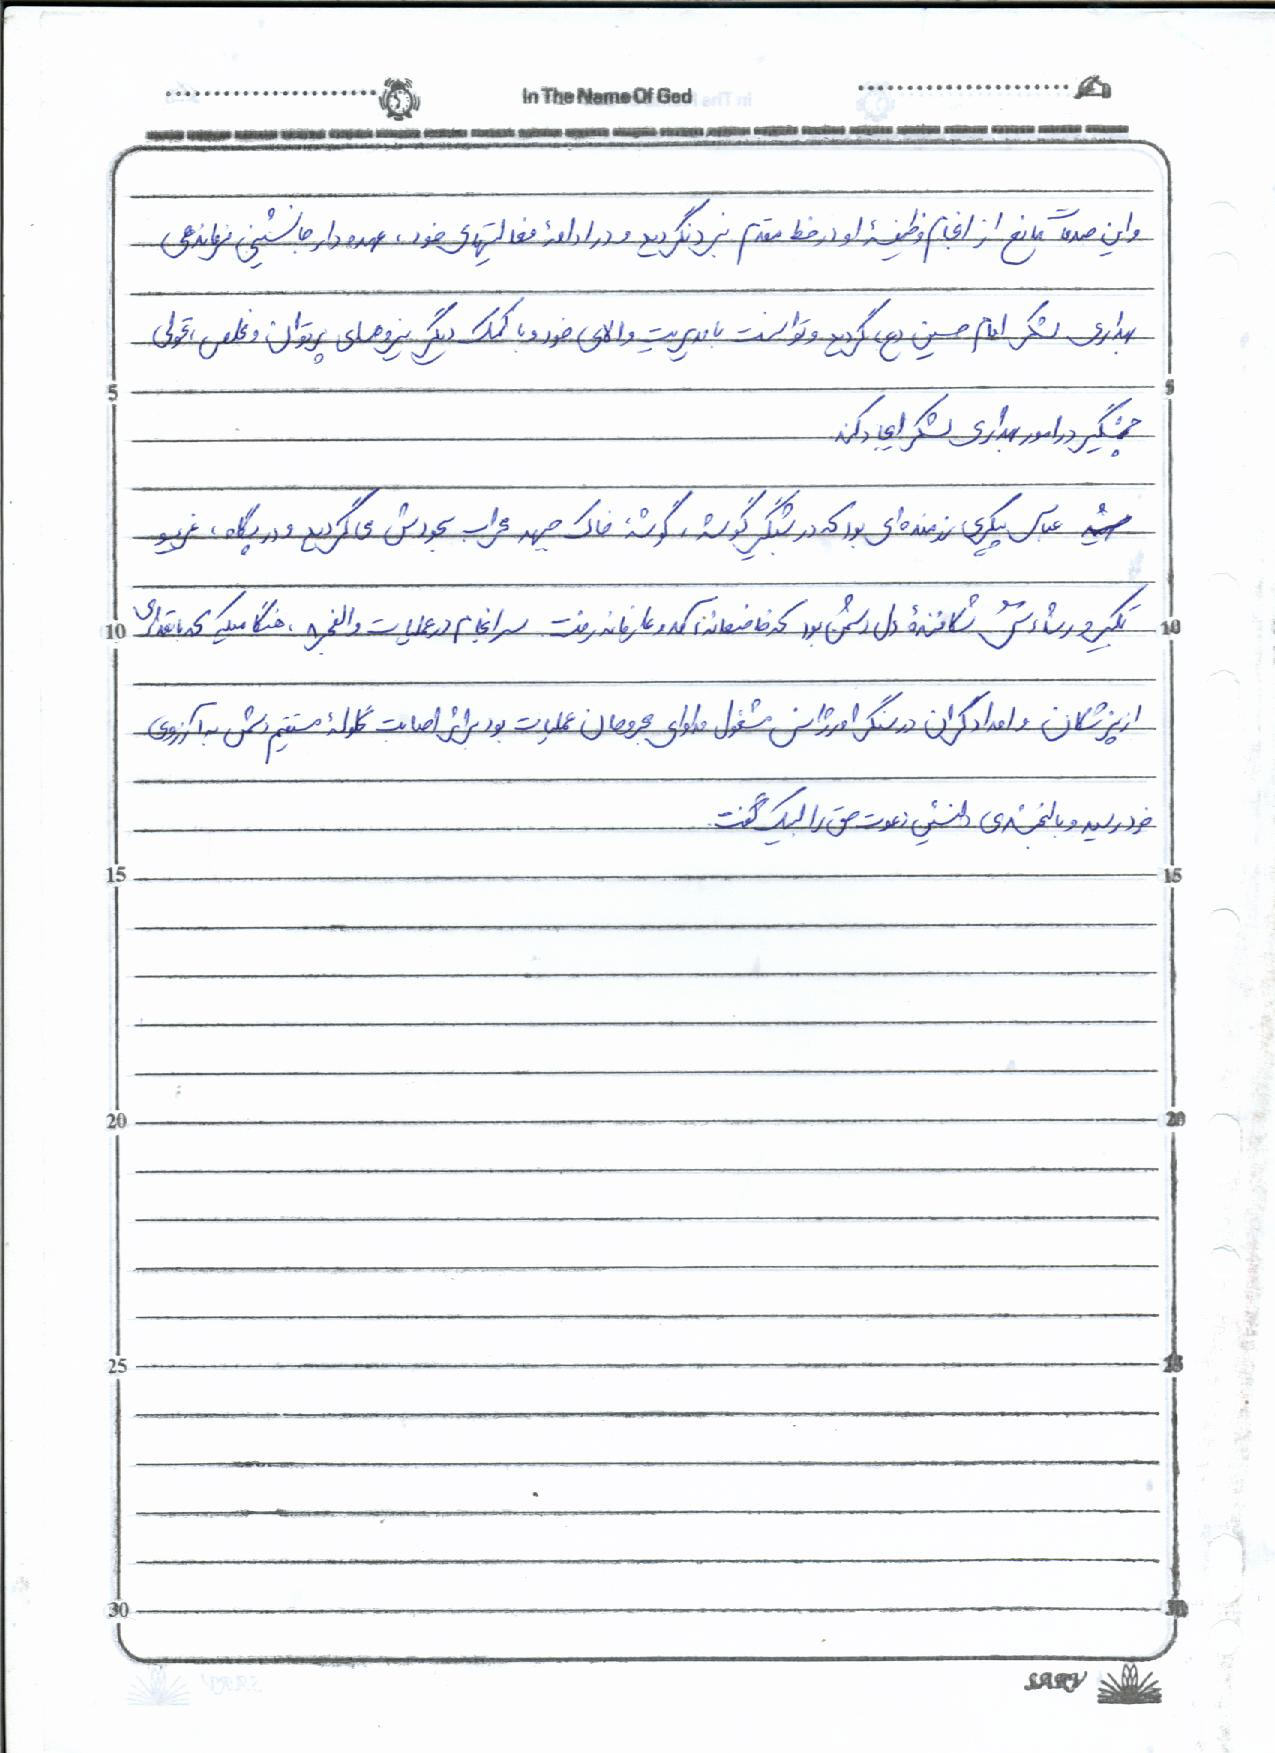 In The Name Of God
و این صدمات مانع از انجام وظیفهٔ او در خط مقدم نبرد نگردید و در ادامهٔ فعالیتهای خود، عهده‌دار جانشینی فرماندهی
بهداری لشکر امام حسین (ع) گردید و توانست با مدیریت والای خود و با کمک دیگر نیروهای پرتوان و مخلص، تحولی
چشمگیر در امور بهداری لشکر ایجاد کند.
عباس پیکری رزمنده‌ای بود که در شبگیر گوشه، گوشهٔ خاک جبهه محراب سجودش می‌گردید و در پگاه، غریو
تکبیر و شکافندهٔ دل دشمن بود که خاضعانه آمد و عارفانه رفت. سرانجام در عملیات والفجر ۸، هنگامیکه با تعدادی
از پزشکان و امدادگران در سنگر اورژانس مشغول مداوای مجروحان عملیات بود بر اثر اصابت گلولهٔ مستقیم دشمن به آرزوی
خود رسید و با لبخندی دلنشین دعوت حق را لبیک گفت.
5
5
10
10
15
15
20
20
25
25
30
30
SARV